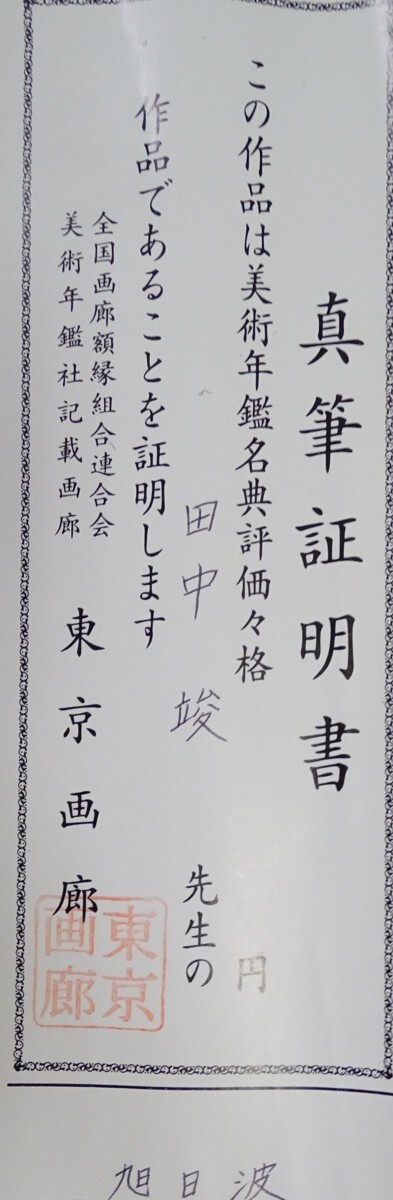 真筆証明書
この作品は美術年鑑名典評価々格 円
田中竣 先生の
作品であることを証明します
全国画廊額縁組合連合会
美術年鑑社記載画廊
東京画廊
東京画廊
旭日波